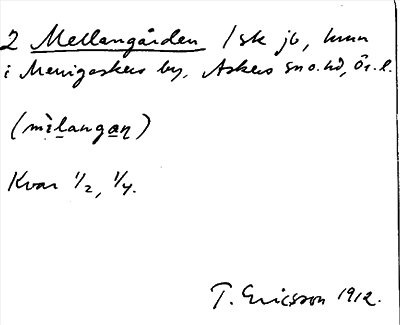 2 Mellangården /sk jb, hmn
i Menigaskers by, Askers sn o. hd, Ör. l.
(mìlangaɳ)
Kvar 1/2, 1/4.
T. Ericsson 1912.